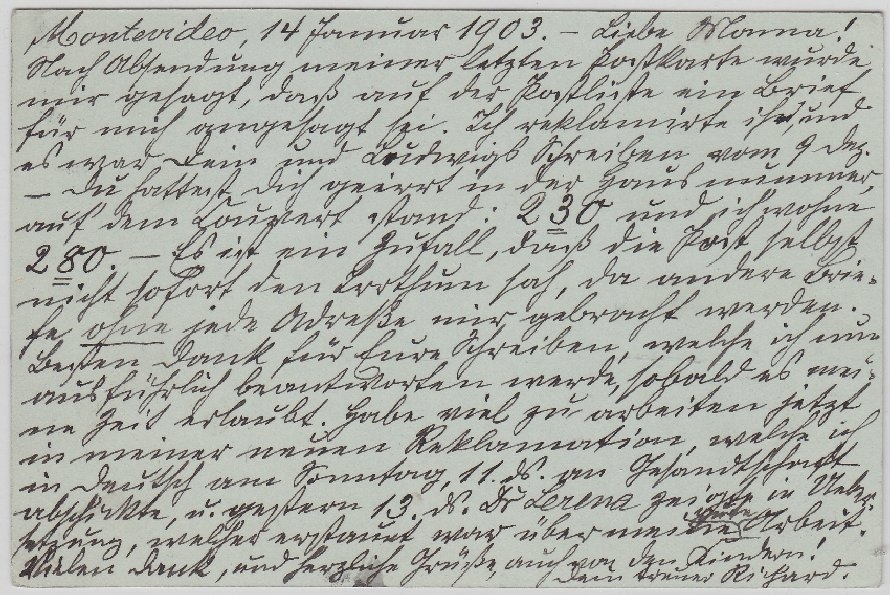 Montevideo, 14 Januar 1903. – Liebe Mama!
Nach Absendung meiner letzten Postkarte wurde
mir gesagt, daß auf der Postliste ein Brief
für mich angesagt sei. Ich reklamirte ihn, und
es war Dein und Ludwigs Schreiben vom 9 Dez.
– Du hattest Dich geirrt in der Hausnummer,
auf dem Couvert stand: 230 und ich wohne
280. – Es ist ein Zufall, daß die Post selbst
nicht sofort den Irrthum sah, da andere Brie-
fe ohne jede Adreße mir gebracht werden.
Besten Dank für Eure Schreiben, welche ich nun
ausführlich beantworten werde, sobald es mei-
ne Zeit erlaubt. Habe viel zu arbeiten jetzt
in meiner neuen Reklamation, welche ich
in Deutsch am Sonntag, 11. ds. an Gesandtschaft
abschickte, u. gestern 13. ds. Dr Lerena zeigte in Ueber-
setzung, welcher erstaunt war über meine Arbeit.
Vielen Dank, und herzliche Grüße, auch von den Kindern!
Dein treuer Richard.